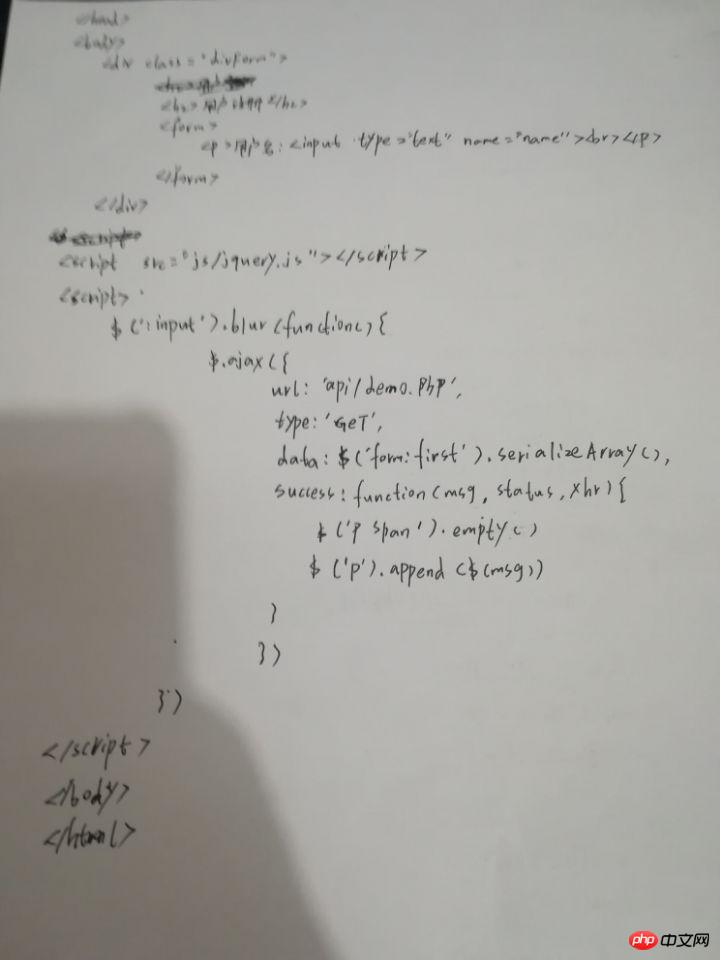 </head>
<body>
<div class="divform">
<h2>用户</h2>
<form>
<p>用户名:<input type="text" name="name"><br></p>
</form>
</div>
<script src="js/jquery.js"></script>
<script>
$(':input').blur(function(){
$.ajax({
url: 'api/demo.php',
type: 'GET',
data: $('form:first').serializeArray(),
success: function(msg, status, xhr){
$('p span').empty()
$('p').append($(msg))
}
})
})
</script>
</body>
</html>
php 中文网